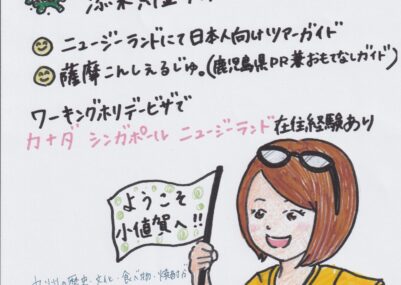 ニュージーランドにて日本人向けツアーガイド
薩摩こんしぇるじゅ。(鹿児島県PR兼おもてなしガイド)
ワーキングホリデービザで
カナダ シンガポール ニュージーランド在住経験あり
ようこそ
小値賀へ!!
の歴史・文化・食べ物・焼酎が